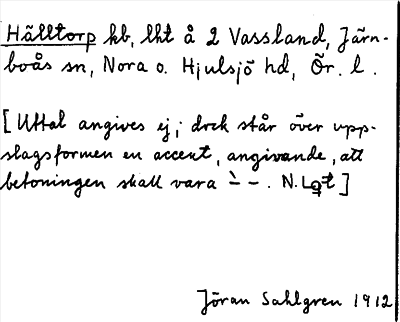 Hälltorp hb, lht å 2 Vassland, Järn-
boås sn, Nora o. Hjulsjö hd, Ör. l.
[Uttal angives ej; dock står över upp-
slagsformen en accent, angivande, att
betoningen skall vara `– –. N. Lgt]
Jöran Sahlgren 1912